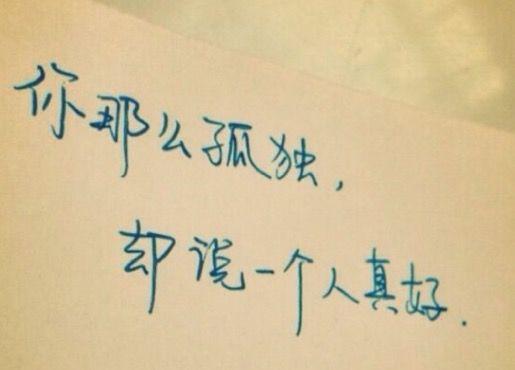 你那么孤独，
却说一个人真好．